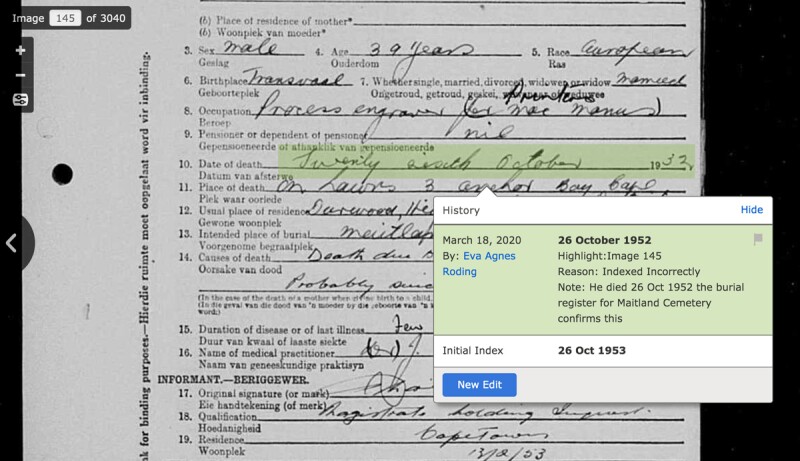 Image 145 of 3040
(b) Place of residence of mother*
(b) Woonplek van moeder*
3. Sex male 4. Age 39 years 5. Race European
Geslag Ouderdom Ras
6. Birthplace Transvaal 7. Whether single, married, divorced, widower or widow married
Geboorteplek Ongetroud, getroud, geskei,
8. Occupation Process engraver (for Mac Manus) Printers
Beroep
9. Pensioner or dependent of pensioner nil
Gepensioeneerde of afhanklik van gepensioeneerde
10. Date of death Twenty sixth October 1952
Datum van afsterwe
11. Place of death On Lawns 3 anchor Bay Cape
Plek waar oorlede
12. Usual place of residence
Gewone woonplek
13. Intended place of burial
Voorgenome begraafplek
14. Causes of death Death due
Oorsake van dood
Probably
(In the case of the death of a mother when giving birth to a child,
15. Duration of disease or of last illness Few
Duur van kwaal of laaste siekte
16. Name of medical practitioner (Dr) J.
Naam van geneeskundige praktisyn
INFORMANT.—BERIGGEWER.
17. Original signature (or mark)
Eie handtekening (of merk)
18. Qualification Magistrate holding Inquest.
Hoedanigheid
19. Residence Cape Town
Woonplek 13/2/53
k for binding purposes.—Hierdie ruimte moet oopgelaat word vir inbinding.
History Hide
March 18, 2020 26 October 1952
By: Eva Agnes Roding
Highlight:Image 145
Reason: Indexed Incorrectly
Note: He died 26 Oct 1952 the burial
register for Maitland Cemetery
confirms this
Initial Index 26 Oct 1953
New Edit